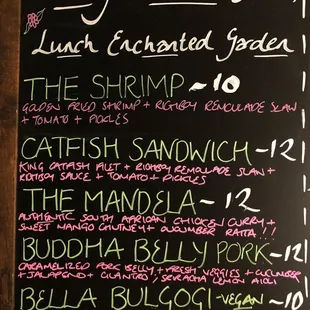 Lunch Enchanted Garden
THE SHRIMP ~ 10
GOLDEN FRIED SHRIMP + RIGHBOY REMOULADE SLAW
+ TOMATO + PICKLES
CATFISH SANDWICH - 12
KING CATFISH FILET + RIGHBOY REMOULADE SLAW +
SAUCE + TOMATO + PICKLES
THE MANDELA - 12
AUTHENTIC SOUTH AFRICAN CHICKEN CURRY +
SWEET MANGO CHUTNEY + CUCUMBER RAITA !!!
BUDDHA BELLY PORK - 12
CARAMELIZED PORK BELLY + FRESH VEGGIES + CUCUMBER
+ JALAPENO + CILANTRO ; SRIRACHA LEMON AIOLI
BELLA BULGOGI - VEGAN - 10